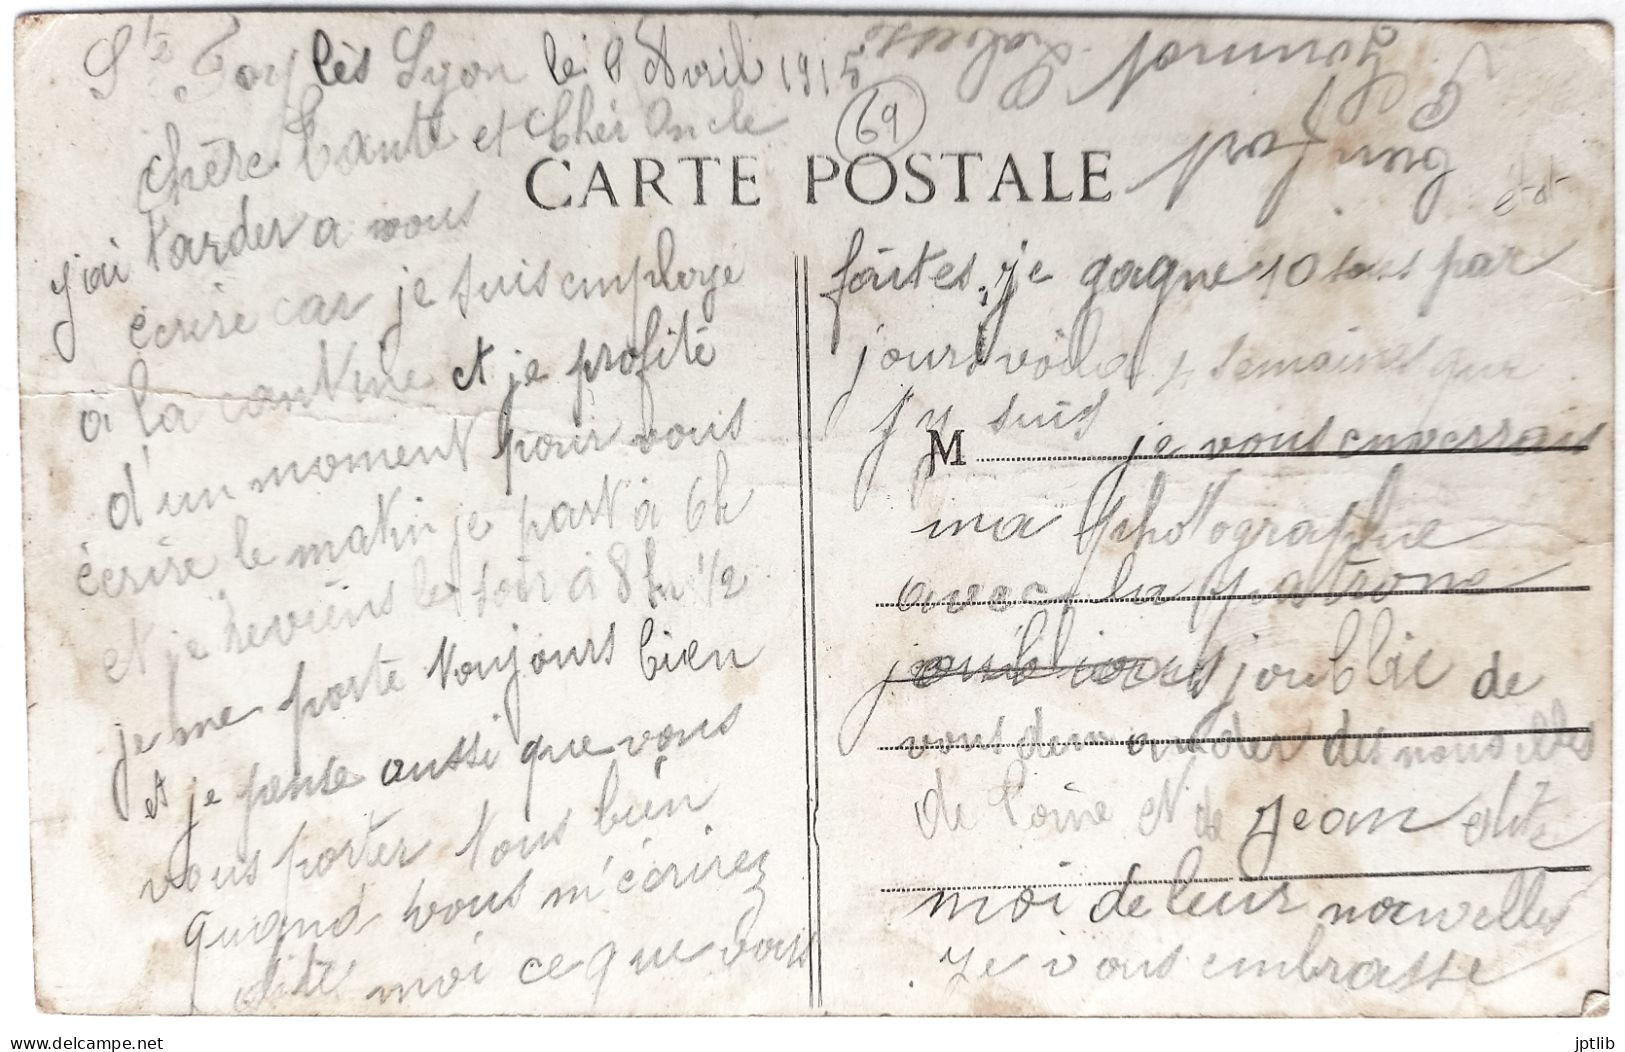 Ste Foy lès Lyon le 9 Avril 1915
69
chère tante et Cher Oncle
CARTE POSTALE
j'ai tarder a vous
écrire car je suis employé
à la cantine et je profite
d'un moment pour vous
écrire le matin je part à 6h
et je reviens le soir à 8h 1/2
je me porte toujours bien
et je pense aussi que vous
vous porter tous bien
quand vous m'écrirez
dite moi ce que vous
faites, je gagne 10 sous par
jours voila semaines que
j y suis
M je vous enverrais
ma photographie
avec la patrone
joublie de
vous demander des nouvelles
de et de Jean dite
moi de leur nouvelles
Je vous embrasse
bien fort
jptlib
delcampe.net